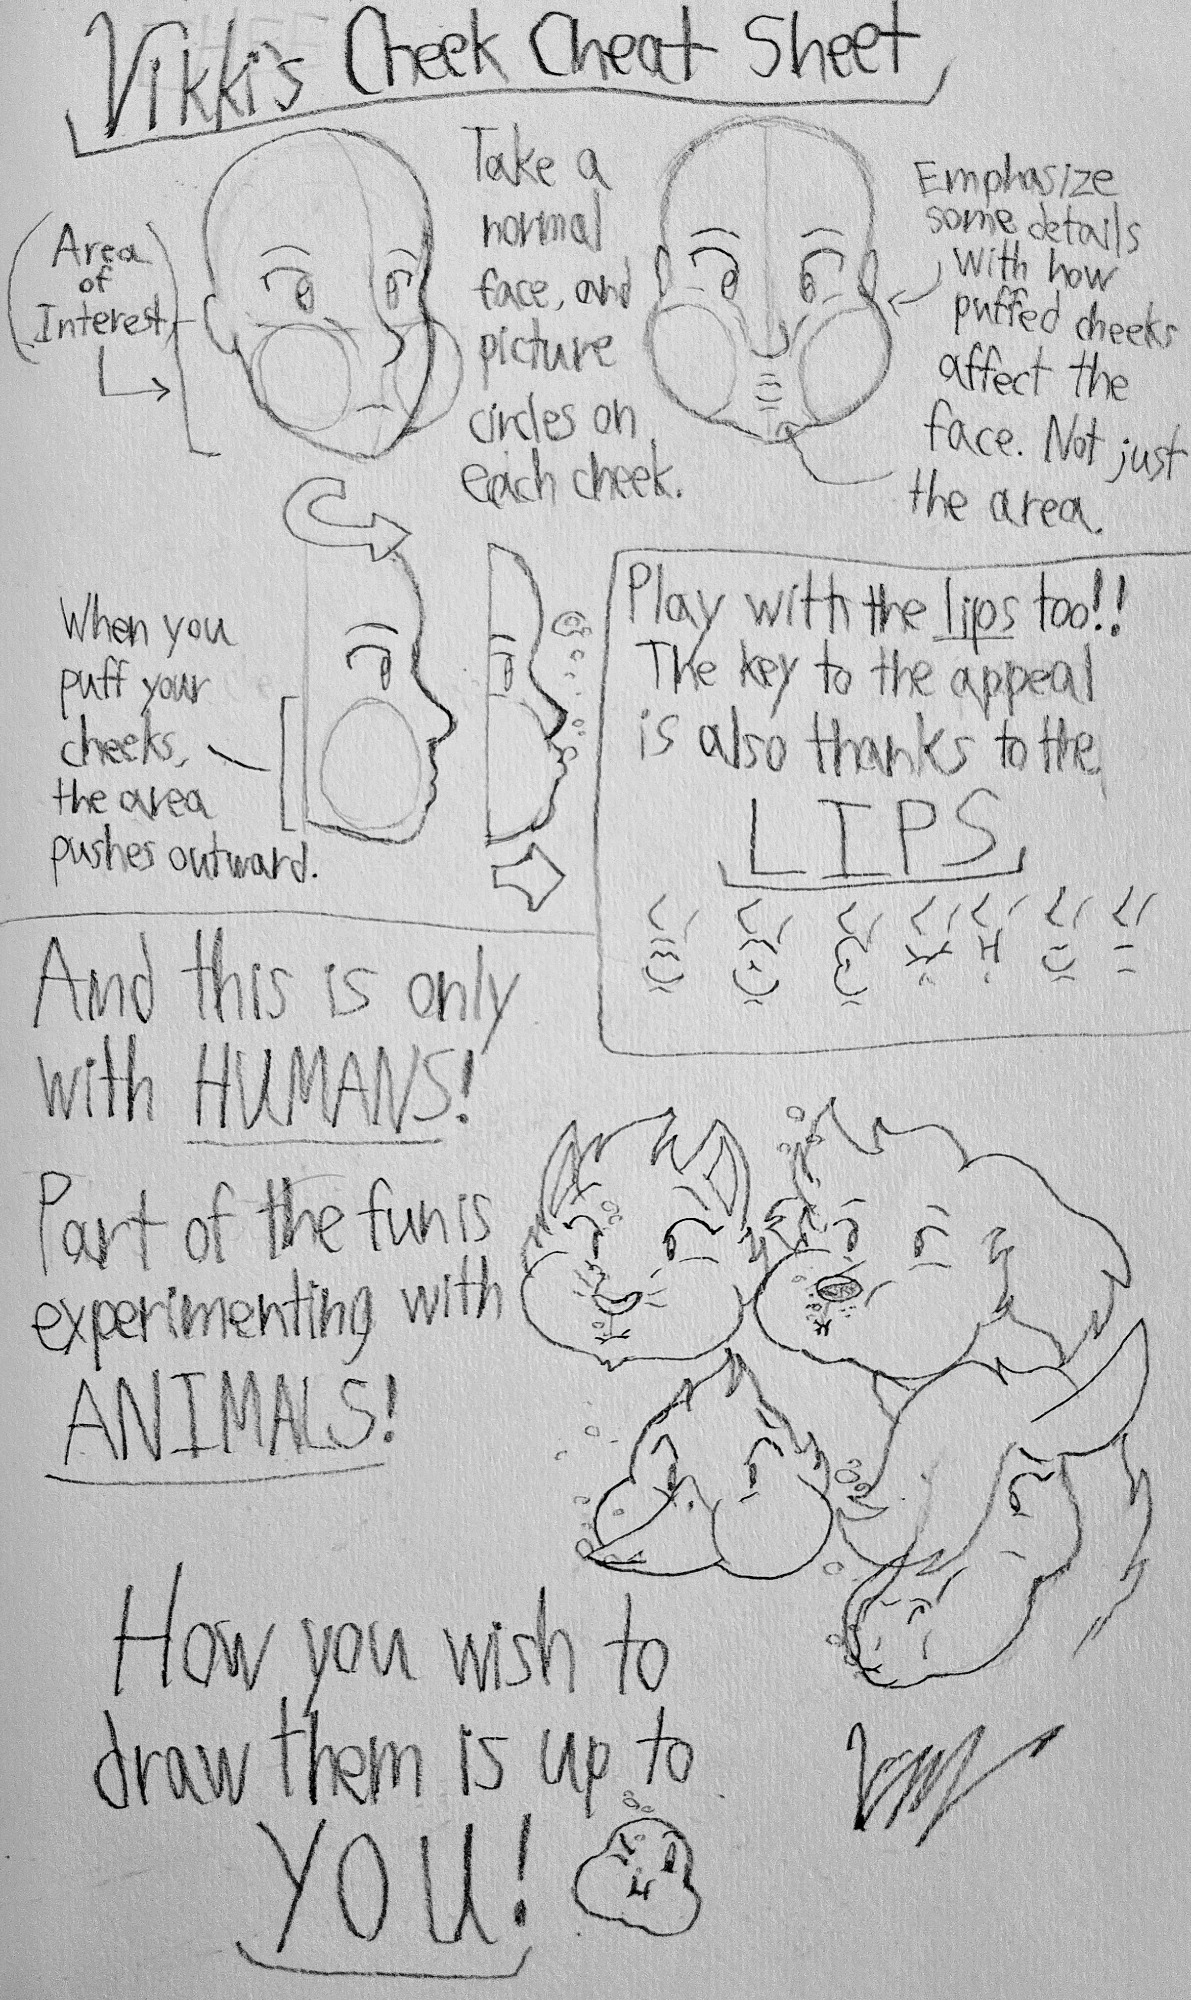 Vikki's Cheek Cheat Sheet
(Area
of
Interest)
Take a
normal
face, and
picture
circles on
each cheek.
Emphasize
some details
with how
puffed cheeks
affect the
face. Not just
the area.
When you
puff your
cheeks,
the area
pushes outward.
Play with the lips too!!
The key to the appeal
is also thanks to the
LIPS
And this is only
with HUMANS!
Part of the fun is
experimenting with
ANIMALS!
How you wish to
draw them is up to
YOU!